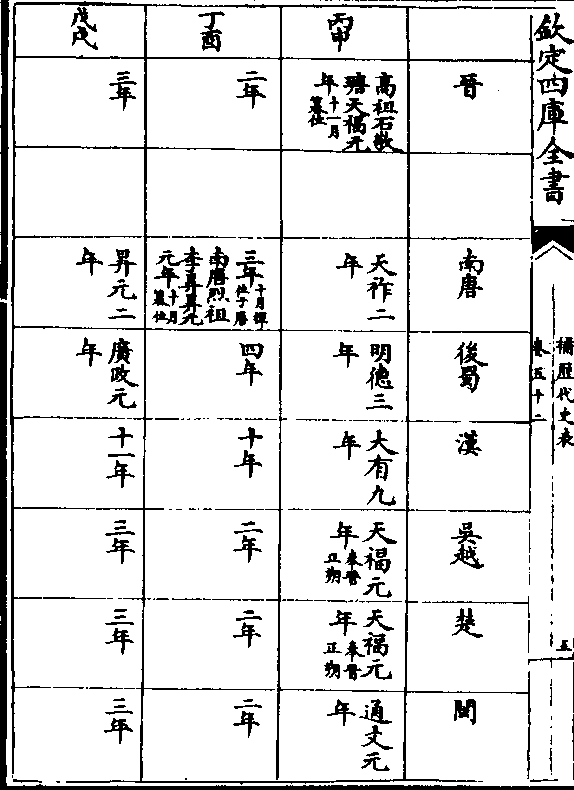 欽定四庫全書
補歷代史表
卷五十二
五
晉
南唐
後蜀
漢
吳越
楚
閩
丙申
高祖石敬
瑭天福元
年十一月
篡位
天祚二
年
明德三
年
大有九
年
天福元
年奉晉
正朔
天福元
年奉晉
正朔
通文元
年
丁酉
二年
三年十月禪
位于唐
南唐烈祖
李昪昇元
元年十月
篡位
四年
十年
二年
二年
二年
戊戌
三年
昇元二
年
廣政元
年
十一年
三年
三年
三年